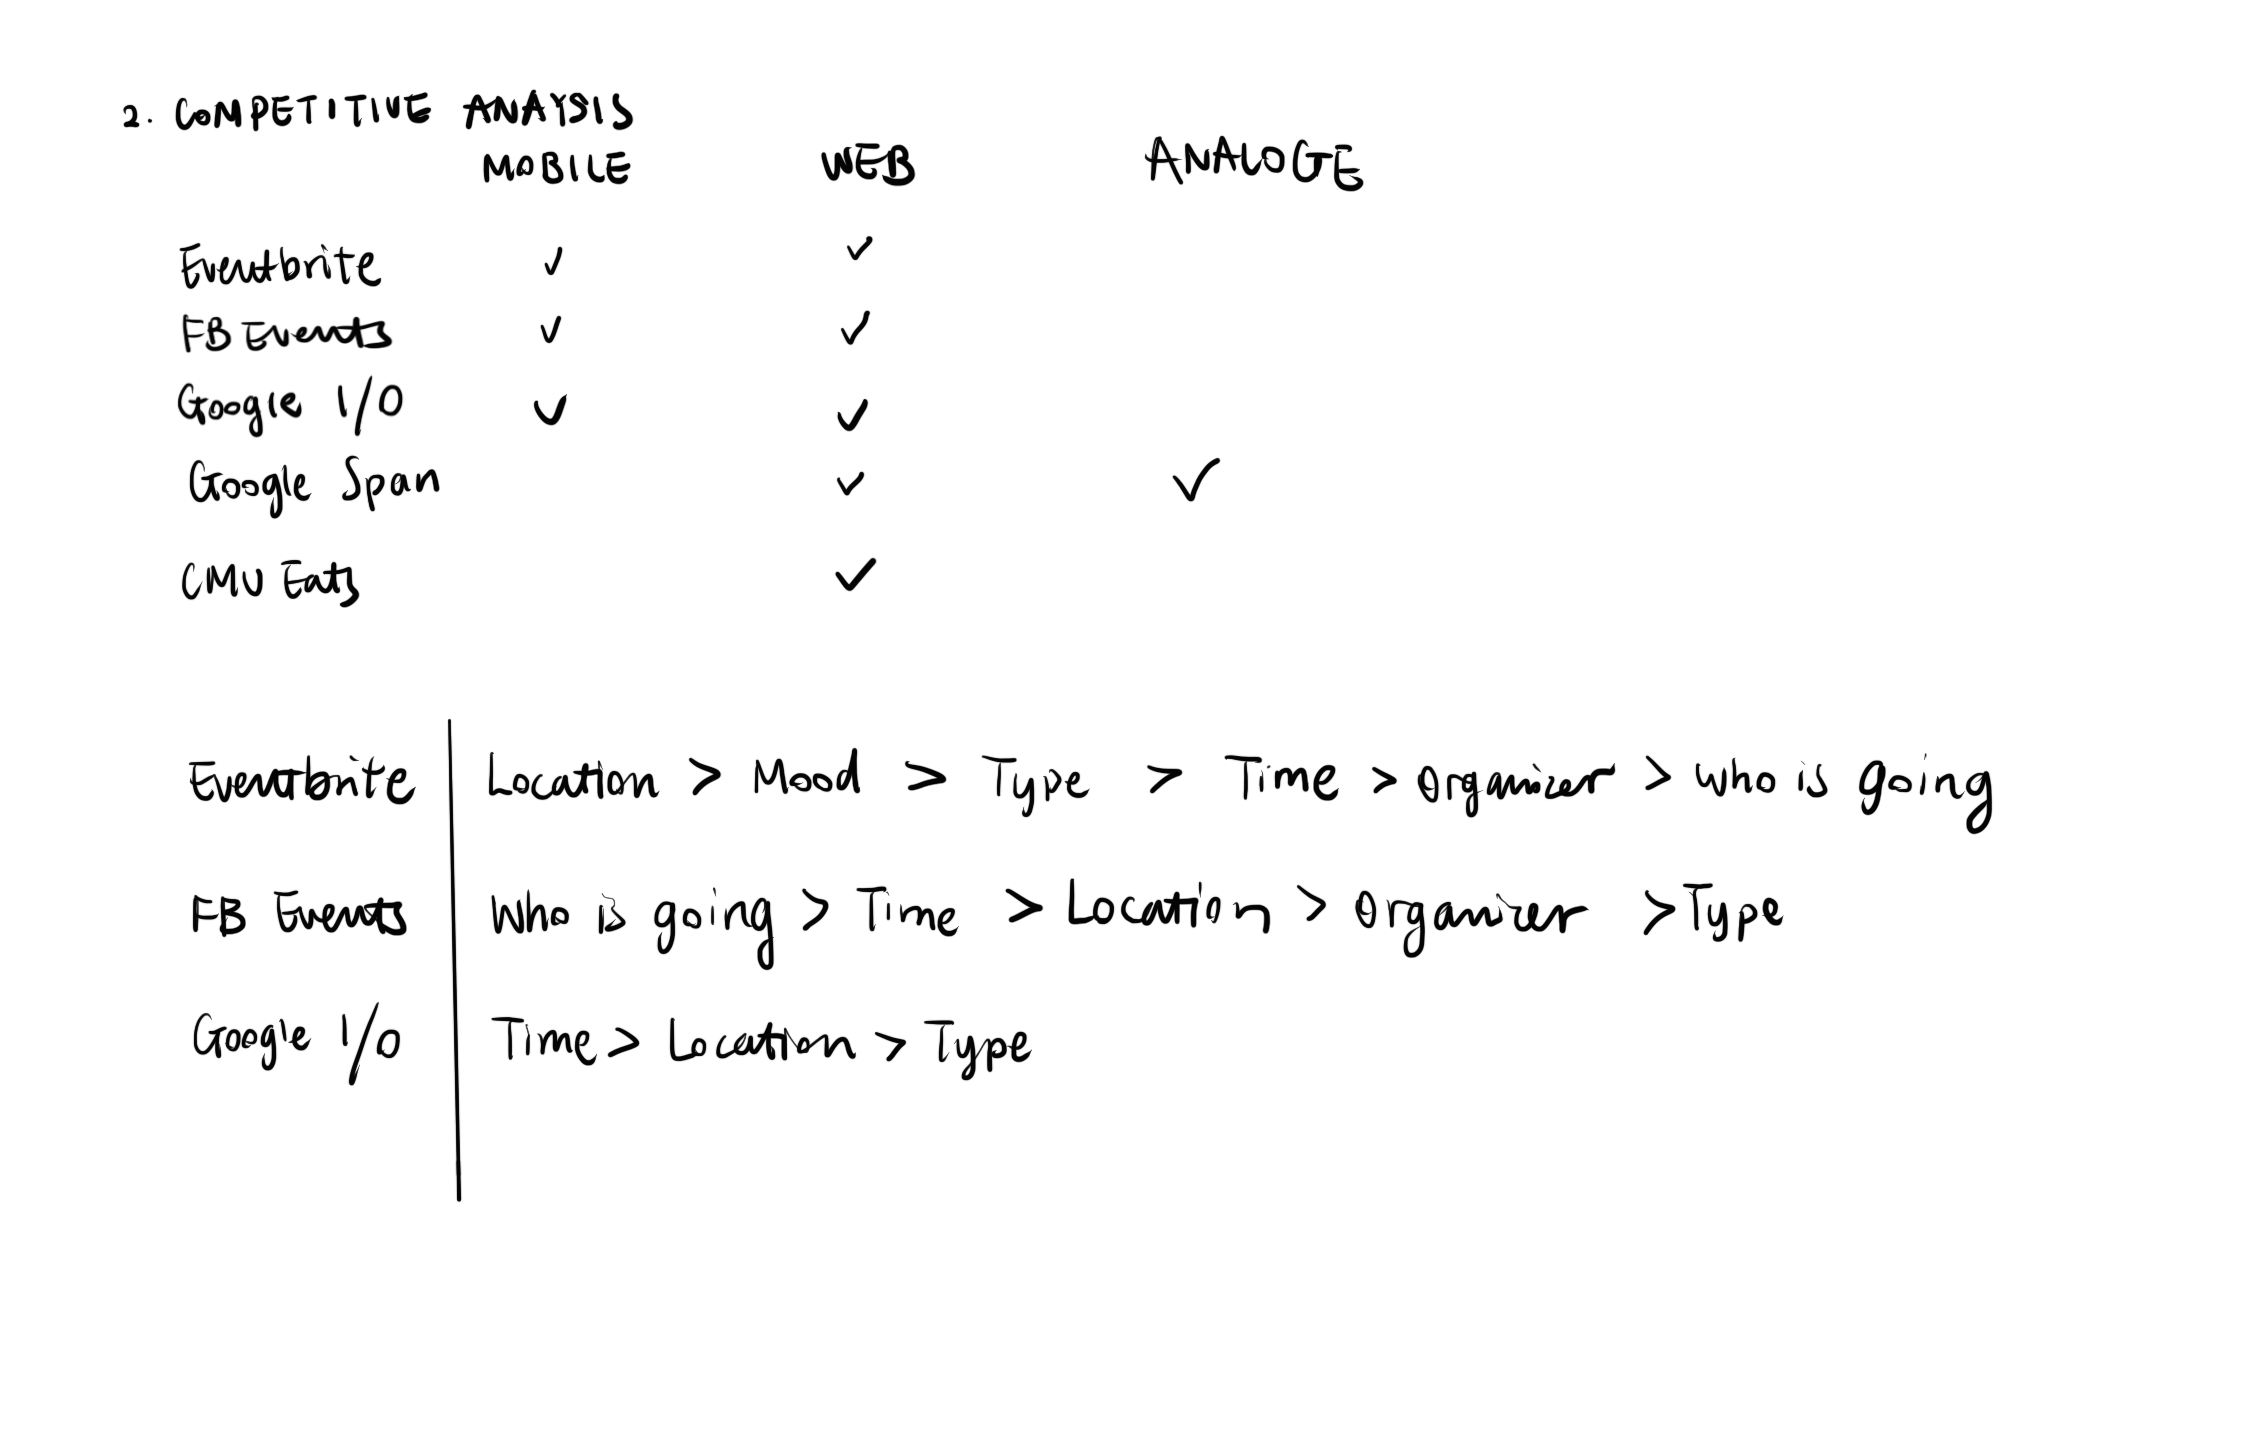 2. COMPETITIVE ANAYSIS
MOBILE WEB ANALOGE
Eventbrite ✓ ✓
FB Events ✓ ✓
Google I/O ✓ ✓
Google Span ✓ ✓
CMU Eats ✓
Eventbrite Location > Mood > Type > Time > Organizer > Who is going
FB Events Who is going > Time > Location > Organizer > Type
Google I/O Time > Location > Type